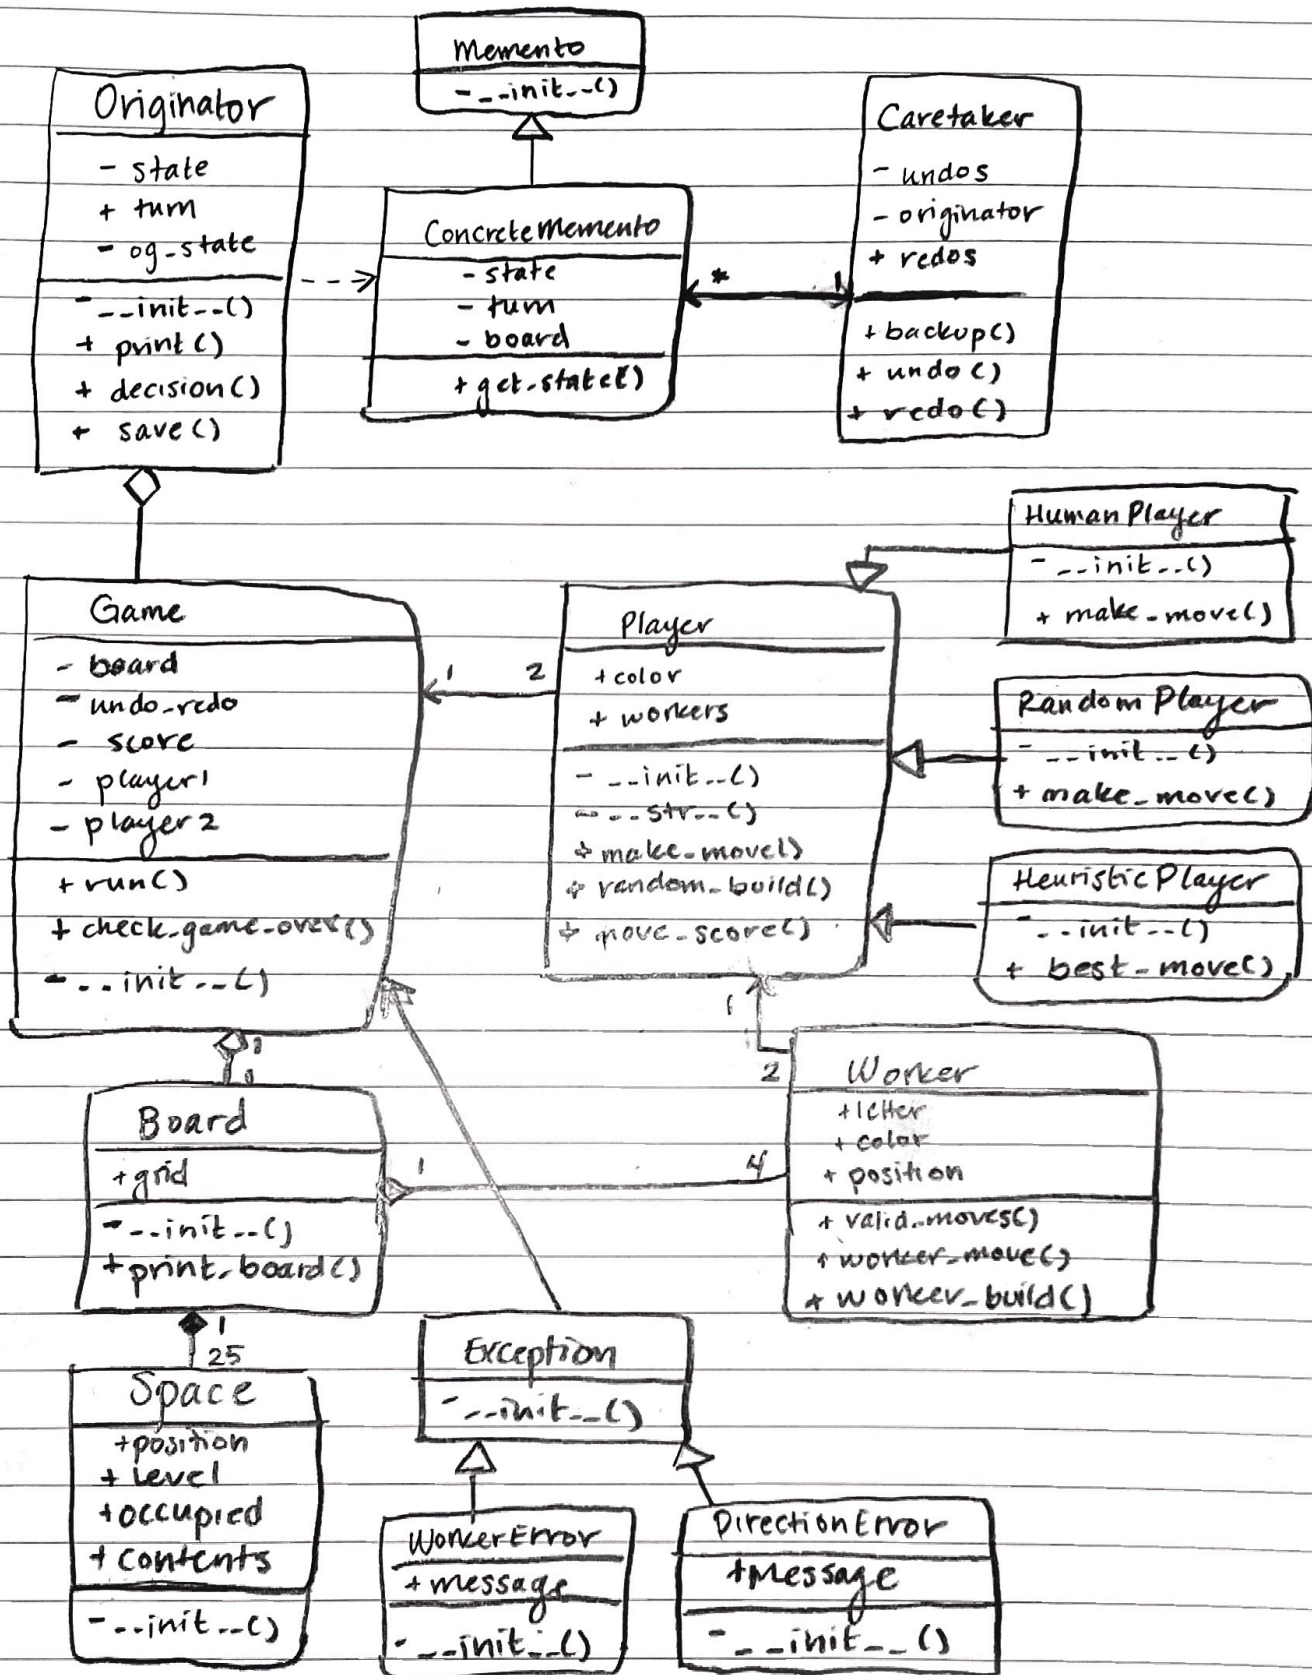 Memento
- __init__()
Originator
- state
+ turn
- og_state
- __init__()
+ print()
+ decision()
+ save()
ConcreteMemento
- state
- turn
- board
+ get_state()
*
1
Caretaker
- undos
- originator
+ redos
+ backup()
+ undo()
+ redo()
Game
- board
- undo_redo
- score
- player1
- player2
+ run()
+ check_game_over()
- __init__()
1
2
Player
+ color
+ workers
- __init__()
- __str__()
+ make_move()
+ random_build()
+ move_score()
HumanPlayer
- __init__()
+ make_move()
RandomPlayer
- __init__()
+ make_move()
HeuristicPlayer
- __init__()
+ best_move()
1
2
1
1
Board
+ grid
- __init__()
+ print_board()
1
4
Worker
+ letter
+ color
+ position
+ valid_moves()
+ worker_move()
+ worker_build()
1
25
Space
+ position
+ level
+ occupied
+ contents
- __init__()
Exception
- __init__()
WorkerError
+ message
- __init__()
DirectionError
+ Message
- __init__()